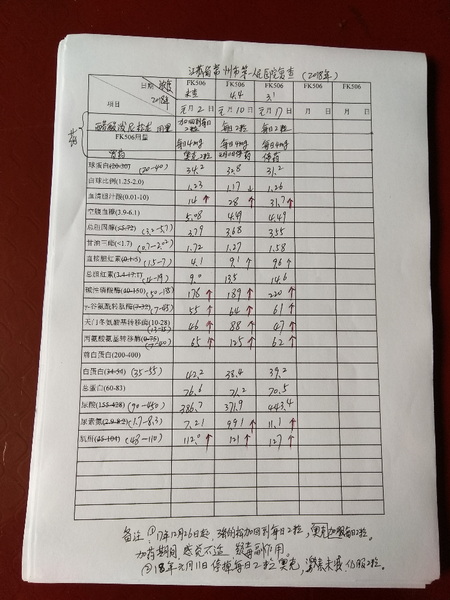 江苏省常州市第一人民医院复查 (2018年)
日期 浓度 2018年 项目 FK506 未查 FK506 4.4 FK506 3.1 FK506 FK506
元月2日 元月10日 元月17日 月 日 月 日
药 醋酸泼尼松龙 用量 加回到每日2粒 每日2粒 每日2粒
FK506用量 每日4mg 每日4mg 每日4mg
奥克2粒 停药
球蛋白(20-30) (20-40) 34.2 32.8 31.2
白球比例(1.25-2.0) 1.23 1.17↓ 1.26
血清胆汁酸(0.01-10) 14↑ 28↑ 31.7↑
空腹血糖(3.9-6.1) 5.08 4.49 4.49
总胆固醇 (3.2-5.7) 3.79 3.68 3.55
甘油三酯(<1.7) (0.7-2.02) 1.72 1.27 1.58
直接胆红素 (1.5-7) 4.1 9.1↑ 9.6↑
总胆红素 (4-19) 9.0 13.5 14.6
碱性磷酸酶(40-150) (50-135) 176↑ 189↑ 220↑
γ-谷氨酰转肽酶 (7-45) 55↑ 64↑ 61↑
天门冬氨酸基转移酶(10-28) (13-35) 46↑ 88↑ 47↑
丙氨酸氨基转移酶 (7-40) 65↑ 125↑ 62↑
前白蛋白(200-400)
白蛋白(34-54) (35-55) 42.2 38.4 39.2
总蛋白(60-83) 76.6 71.2 70.5
尿酸(155-428) (90-450) 386.7 371.9 443.4
尿素氮(2.9-8.2) (1.7-8.3) 7.21 9.91↑ 11.1↑
肌酐(25-104) (48-110) 112.0↑ 121↑ 127↑
备注: ①17年12月26日起, 强的松加回到每日2粒, 奥克加服每日2粒.
加药期间, 感觉不适, 疑毒副作用.
②18年元月11日停掉每日2粒奥克, 激素未减, 仍服2粒.